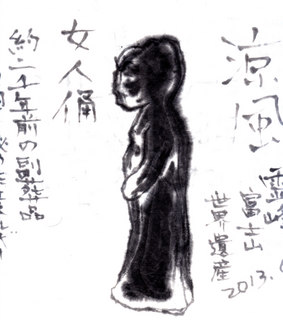 涼風
霊峰
富士山
世界遺産
2013.
女人俑
約二千年前の副葬品